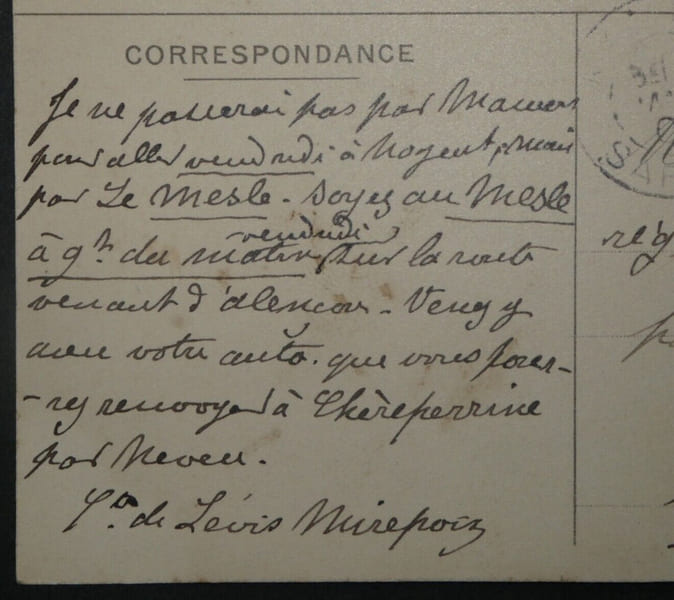 CORRESPONDANCE
Je ne passerai pas par Mamers
pour aller vendredi à Nogent, mais
par Le Mesle. Soyez au Mesle
vendredi
à 9h du matin, sur la route
venant d'alençon. Venez y
avec votre auto. que vous pour-
-rez renvoyer à Chèreperrine
par Neveu.
de Lévis Mirepoix
rég